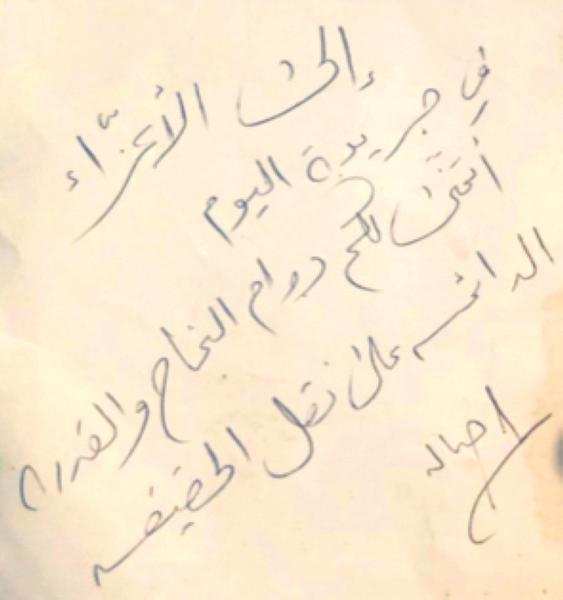 إلى الأعزّاء
في جريدة اليوم
أتمنى لكم دوام النجاح والقدرة
الدائمة على نقل الحقيقة